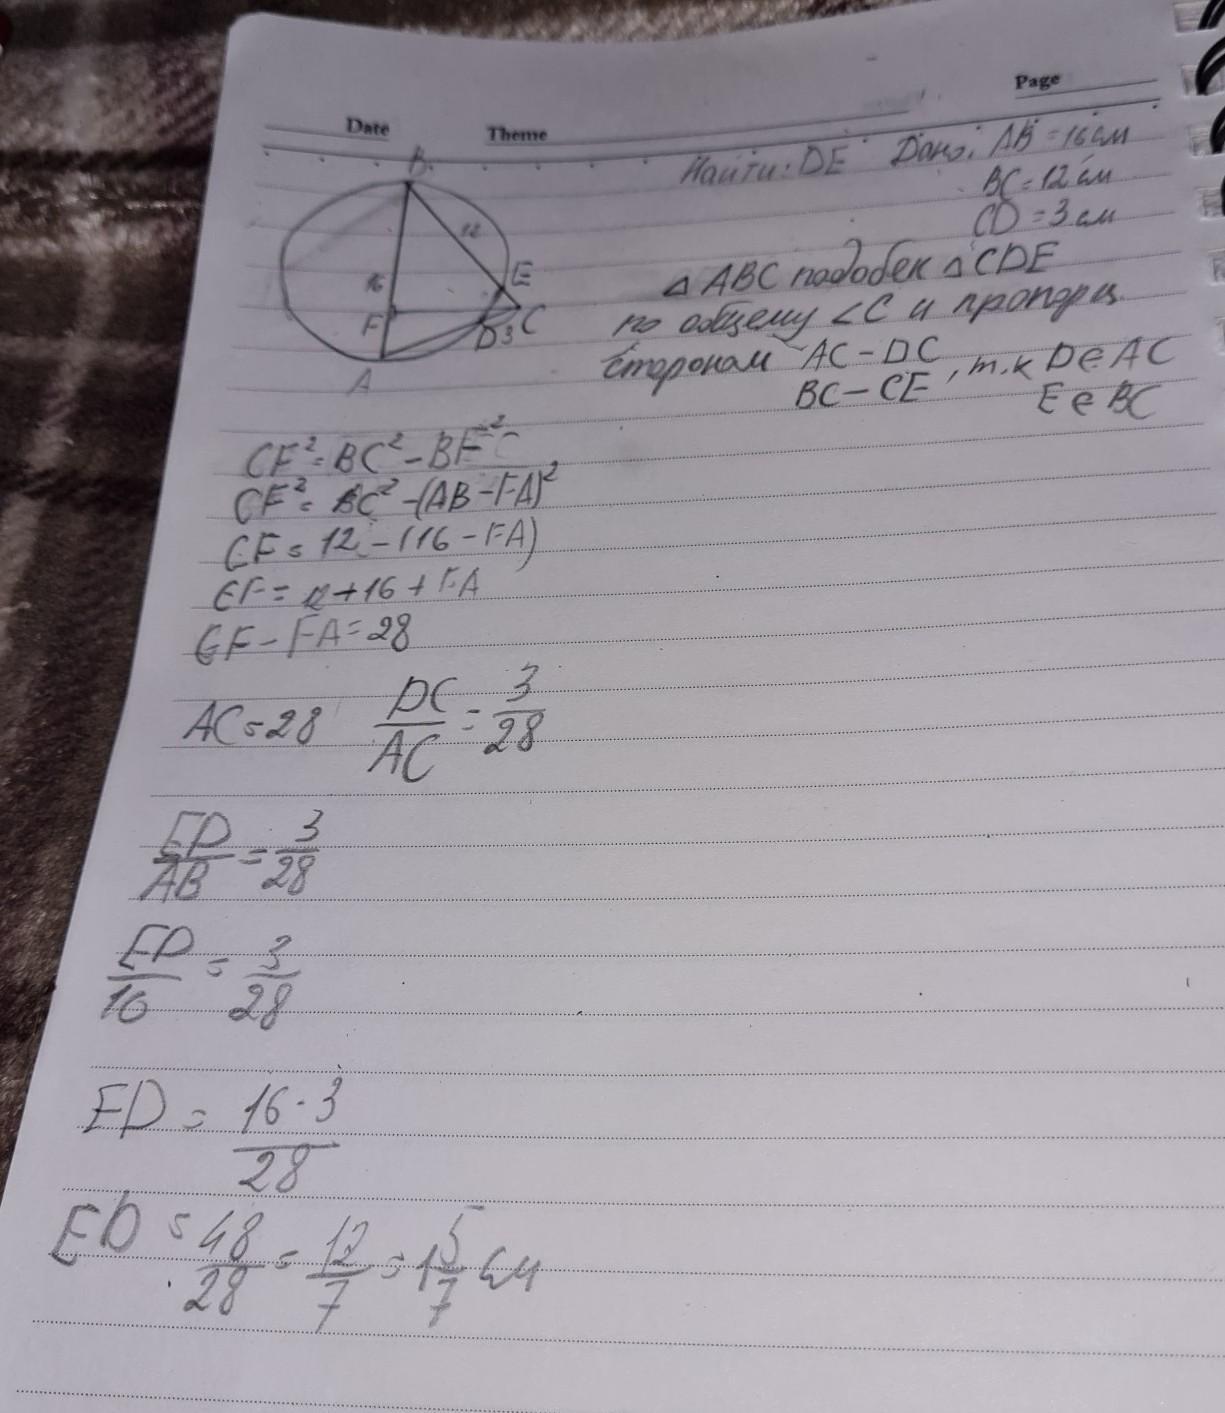 Page
Date Theme
Найти: DE Дано: AB = 16 см
BC = 12 см
CD = 3 см
B
12
16
E
F
D 3 C
A
△ ABC подобен △ CDE
по общему ∠C и пропорц.
сторонам AC - DC, т.к D∈AC
BC - CE E∈BC
CF² = BC² - BF²
CF² = BC² - (AB - FA)²
CF = 12 - (16 - FA)
CF = 12 + 16 + FA
CF - FA = 28
AC = 28 DC/AC = 3/28
ED/AB = 3/28
ED/16 = 3/28
ED = 16 · 3/28
ED = 48/28 = 12/7 = 1 5/7 см